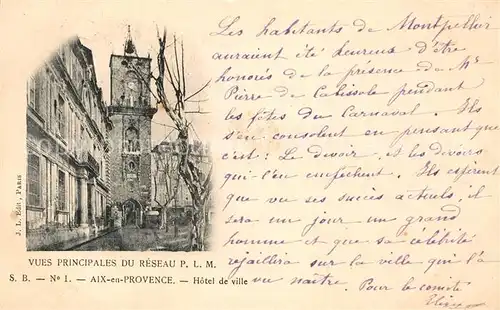 Les habitants de Montpellier
auraient été heureux d'être
honorés de la présence de Mr
Pierre de Cabissole pendant
les fêtes du Carnaval. Ils
s'en consolent en pensant que
c'est: Le devoir, et les devoirs
qui l'en empêchent. Ils espèrent
que vu ses succès actuels, il
sera un jour un grand
homme et que sa célébrité
rejaillira sur la ville qui l'a
vu naître. Pour le comité
J. L. Edit., PARIS
VUES PRINCIPALES DU RÉSEAU P. L. M.
S. B. — No 1. — AIX-en-PROVENCE. — Hôtel de ville